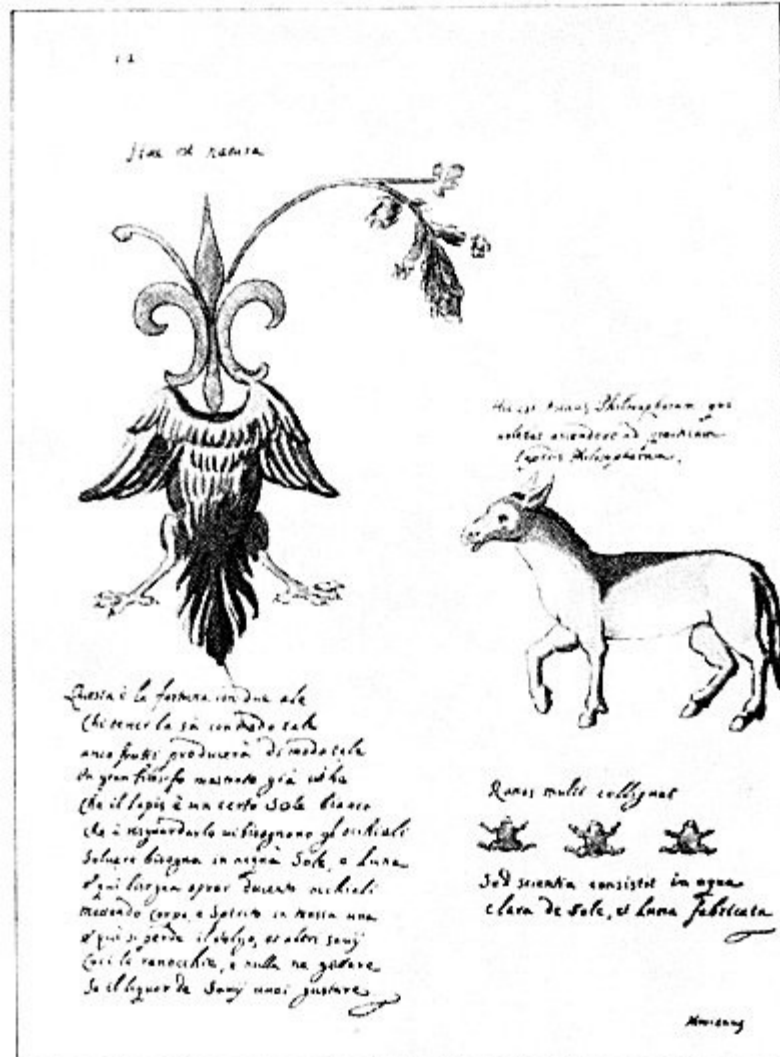 12
Haec est natura
Hic est Asinus Philosophorum qui
ascendere ad practicam
Lapidis Philosophorum.
Questa è la fortuna con due ale
Chi tener la sà con modo tale
anco frutti producerà di modo tale
Un gran filosofo mostrato già
che il lapis è un certo Sole bianco
che à risguardarlo bisognono gl'occhiali
Soluere bisogna in acqua Sole, e Luna
e qui bisogna oprar ducento occhiali
corpo, e Spirito in una
e qui si perde il volgo, et altri
le ranocchie, e nulla
Se il liquor de gustare
Ranas multi colligunt
Sed scientia consistit in aqua
clara de Sole, et Luna fabricata